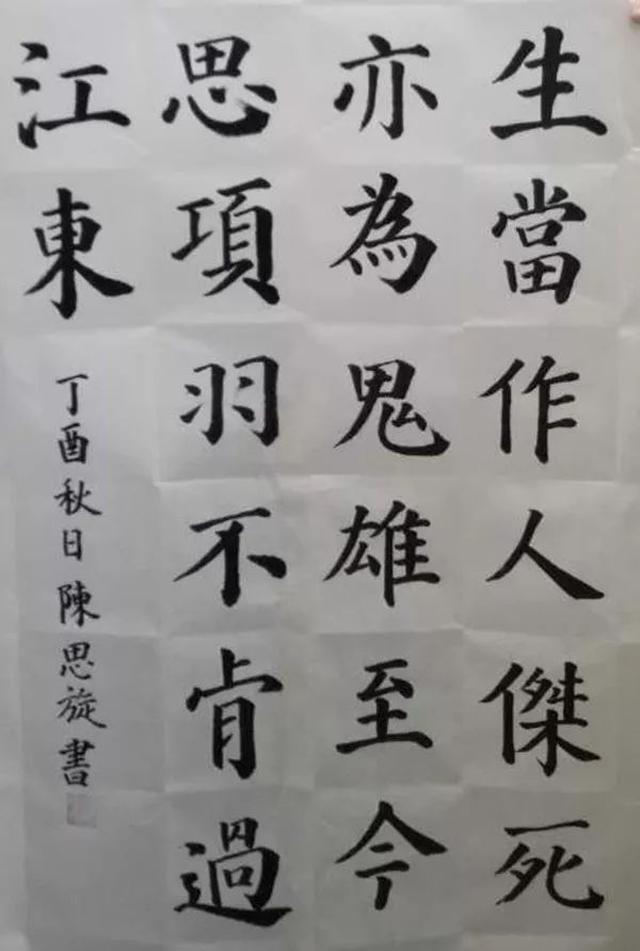 生當作人傑死
亦為鬼雄至今
思項羽不肯過
江東
丁酉秋日陳思旋書